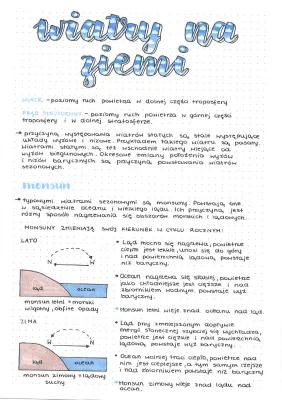 wiatry na
ziemi
WIATR - poziomy ruch powietrza w dolnej części troposfery
PRĄD STRUMIENIOWY - poziomy ruch powietrza w górnej części
troposfery i w dolnej stratosferze.
→ przyczyną występowania wiatrów stałych są stale występujące
układy wyżowe i niżowe. Przykładem takiego wiatru są pasaty.
Wiatrami stałymi są też wschodnie wiatry wiejące od
wyżów biegunowych. Okresowe zmiany położenia wyżów
i niżów barycznych są przyczyną powstawania wiatrów
sezonowych.
monsun
→ typowymi wiatrami sezonowymi są monsuny. Powstają one
w sąsiedztwie oceanu i wielkiego lądu. Ich przyczyną jest
różny sposób nagrzewania się obszarów morskich i lądowych.
MONSUNY ZMIENIAJĄ SWÓJ KIERUNEK W CYKLU ROCZNYM!
LATO
N W
ląd ocean
monsun letni = morski
wilgotny, obfite opady
• Ląd mocno się nagrzewa, powietrze
ciepłe jest lekkie, unosi się do góry
i nad powierzchnią lądową, powstaje
niż baryczny.
• Ocean nagrzewa się słabiej, powietrze
jako chłodniejsze jest cięższe i nad
zbiornikiem wodnym powstaje wyż
baryczny.
• Monsun letni wieje znad oceanu nad ląd.
ZIMA
W N
ląd ocean
monsun zimowy = lądowy
suchy
• Ląd przy zmniejszonym dopływie
energii słonecznej szybciej się wychładza,
powietrze jest cięższe i nad powierzchnią
lądową, powstaje wyż baryczny.
• Ocean wolniej traci ciepło, powietrze nad
nim jest cieplejsze, a tym samym rzejsze
i nad zbiornikiem powstaje niż baryczny
→ Monsun zimowy wieje znad lądu nad
ocean.